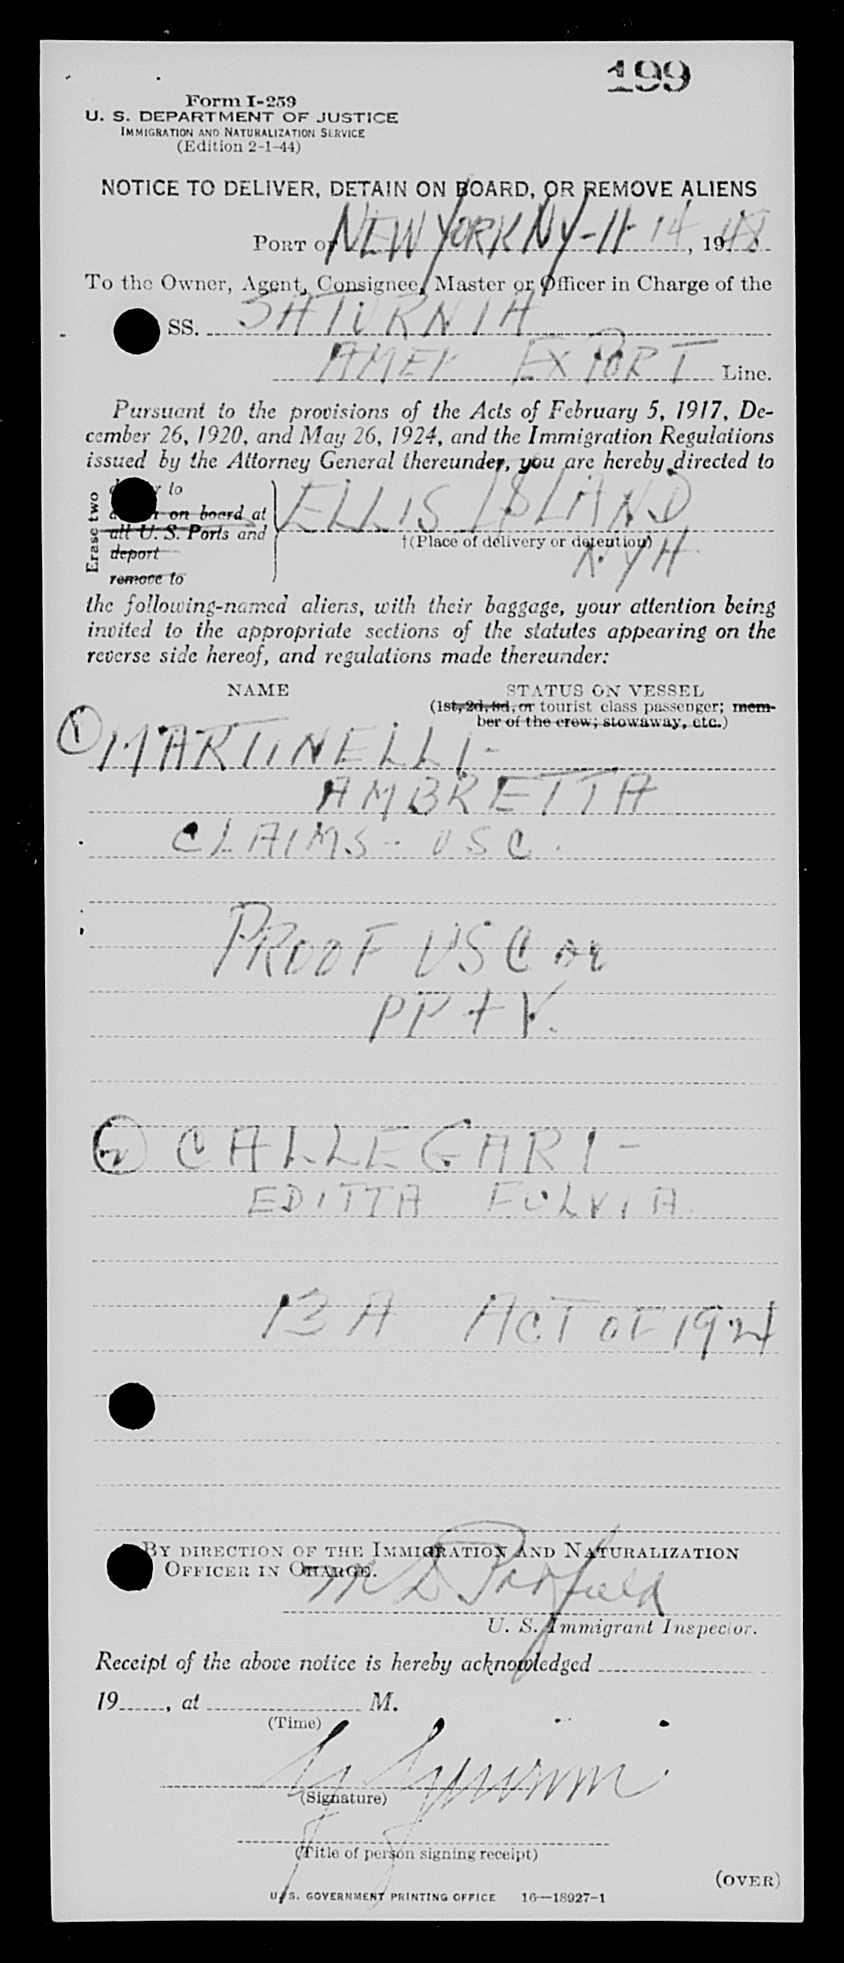 199
Form I-259
U. S. DEPARTMENT OF JUSTICE
IMMIGRATION AND NATURALIZATION SERVICE
(Edition 2-1-44)
NOTICE TO DELIVER, DETAIN ON BOARD, OR REMOVE ALIENS
PORT OF NEW YORK NY - 11-14, 1948
To the Owner, Agent, Consignee, Master or Officer in Charge of the
SS. SATURNIA
AMER EXPORT Line.
Pursuant to the provisions of the Acts of February 5, 1917, De-
cember 26, 1920, and May 26, 1924, and the Immigration Regulations
issued by the Attorney General thereunder, you are hereby directed to
Erase two
to
on board at
all U. S. Ports and
deport
remove to
ELLIS ISLAND
†(Place of delivery or detention)
NYH
the following-named aliens, with their baggage, your attention being
invited to the appropriate sections of the statutes appearing on the
reverse side hereof, and regulations made thereunder:
NAME STATUS ON VESSEL
(1st, 2d, 3d, or tourist class passenger; mem-
ber of the crew; stowaway, etc.)
1 MARTINELLI -
AMBRETTA
CLAIMS - USC.
PROOF USC or
PP + V.
2 CALLEGARI -
EDITTA FULVIA
13 A ACT OF 1924
BY DIRECTION OF THE IMMIGRATION AND NATURALIZATION
OFFICER IN CHARGE.
U. S. Immigrant Inspector.
Receipt of the above notice is hereby acknowledged
19 , at M.
(Time)
(Signature)
(Title of person signing receipt)
(OVER)
U. S. GOVERNMENT PRINTING OFFICE 16—18927-1